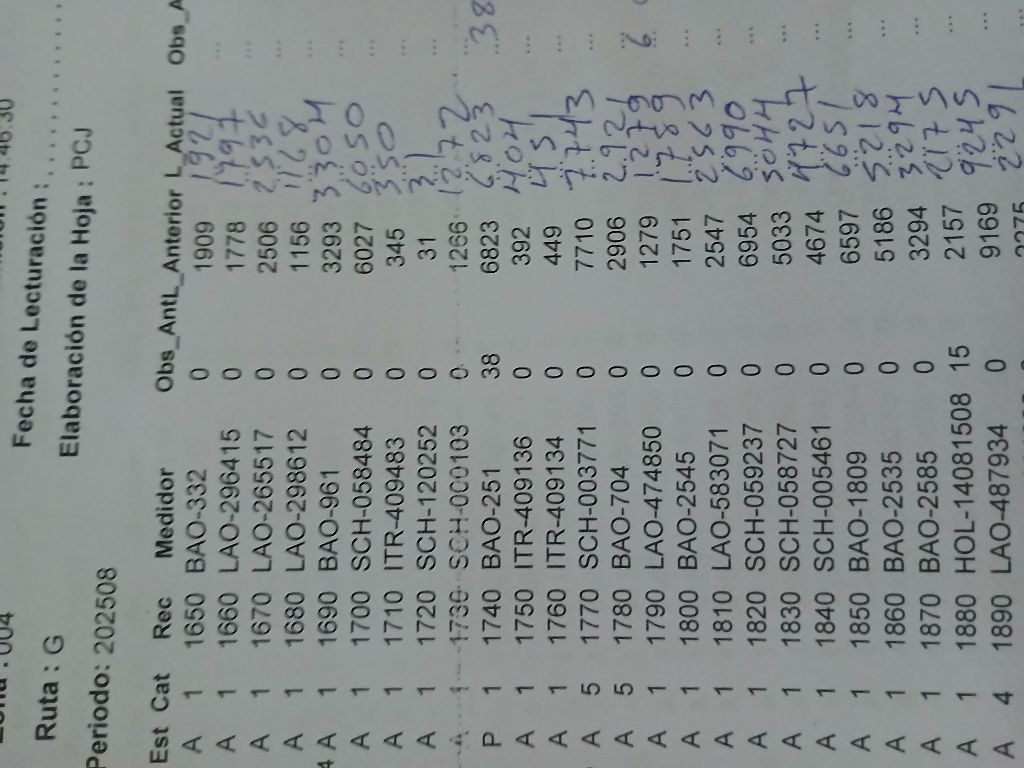 004
14:46:30
Ruta : G
Fecha de Lecturación :
Periodo: 202508
Elaboración de la Hoja : PCJ
Est Cat Rec Medidor Obs_Ant L_Anterior L_Actual Obs_A
A 1 1650 BAO-332 0 1909 1921
A 1 1660 LAO-296415 0 1778 1797 ...
A 1 1670 LAO-265517 0 2506 2536 ...
A 1 1680 LAO-298612 0 1156 1168 ...
4 A 1 1690 BAO-961 0 3293 3304 ...
A 1 1700 SCH-058484 0 6027 6050 ...
A 1 1710 ITR-409483 0 345 350 ...
A 1 1720 SCH-120252 0 31 31 ...
A 1 1730 SCH-000103 0 1266 1272 ...
P 1 1740 BAO-251 38 6823 6823 38
A 1 1750 ITR-409136 0 392 404 ...
A 1 1760 ITR-409134 0 449 451 ...
A 5 1770 SCH-003771 0 7710 7743 ...
A 5 1780 BAO-704 0 2906 2921
A 1 1790 LAO-474850 0 1279 1279 6
A 1 1800 BAO-2545 0 1751 1789 ...
A 1 1810 LAO-583071 0 2547 2563 ...
A 1 1820 SCH-059237 0 6954 6990 ...
A 1 1830 SCH-058727 0 5033 5044 ...
A 1 1840 SCH-005461 0 4674 4727 ...
A 1 1850 BAO-1809 0 6597 6651 ...
A 1 1860 BAO-2535 0 5186 5218 ...
A 1 1870 BAO-2585 0 3294 3294 ...
A 1 1880 HOL-14081508 15 2157 2175 ...
A 4 1890 LAO-487934 0 9169 9245 ...
2291